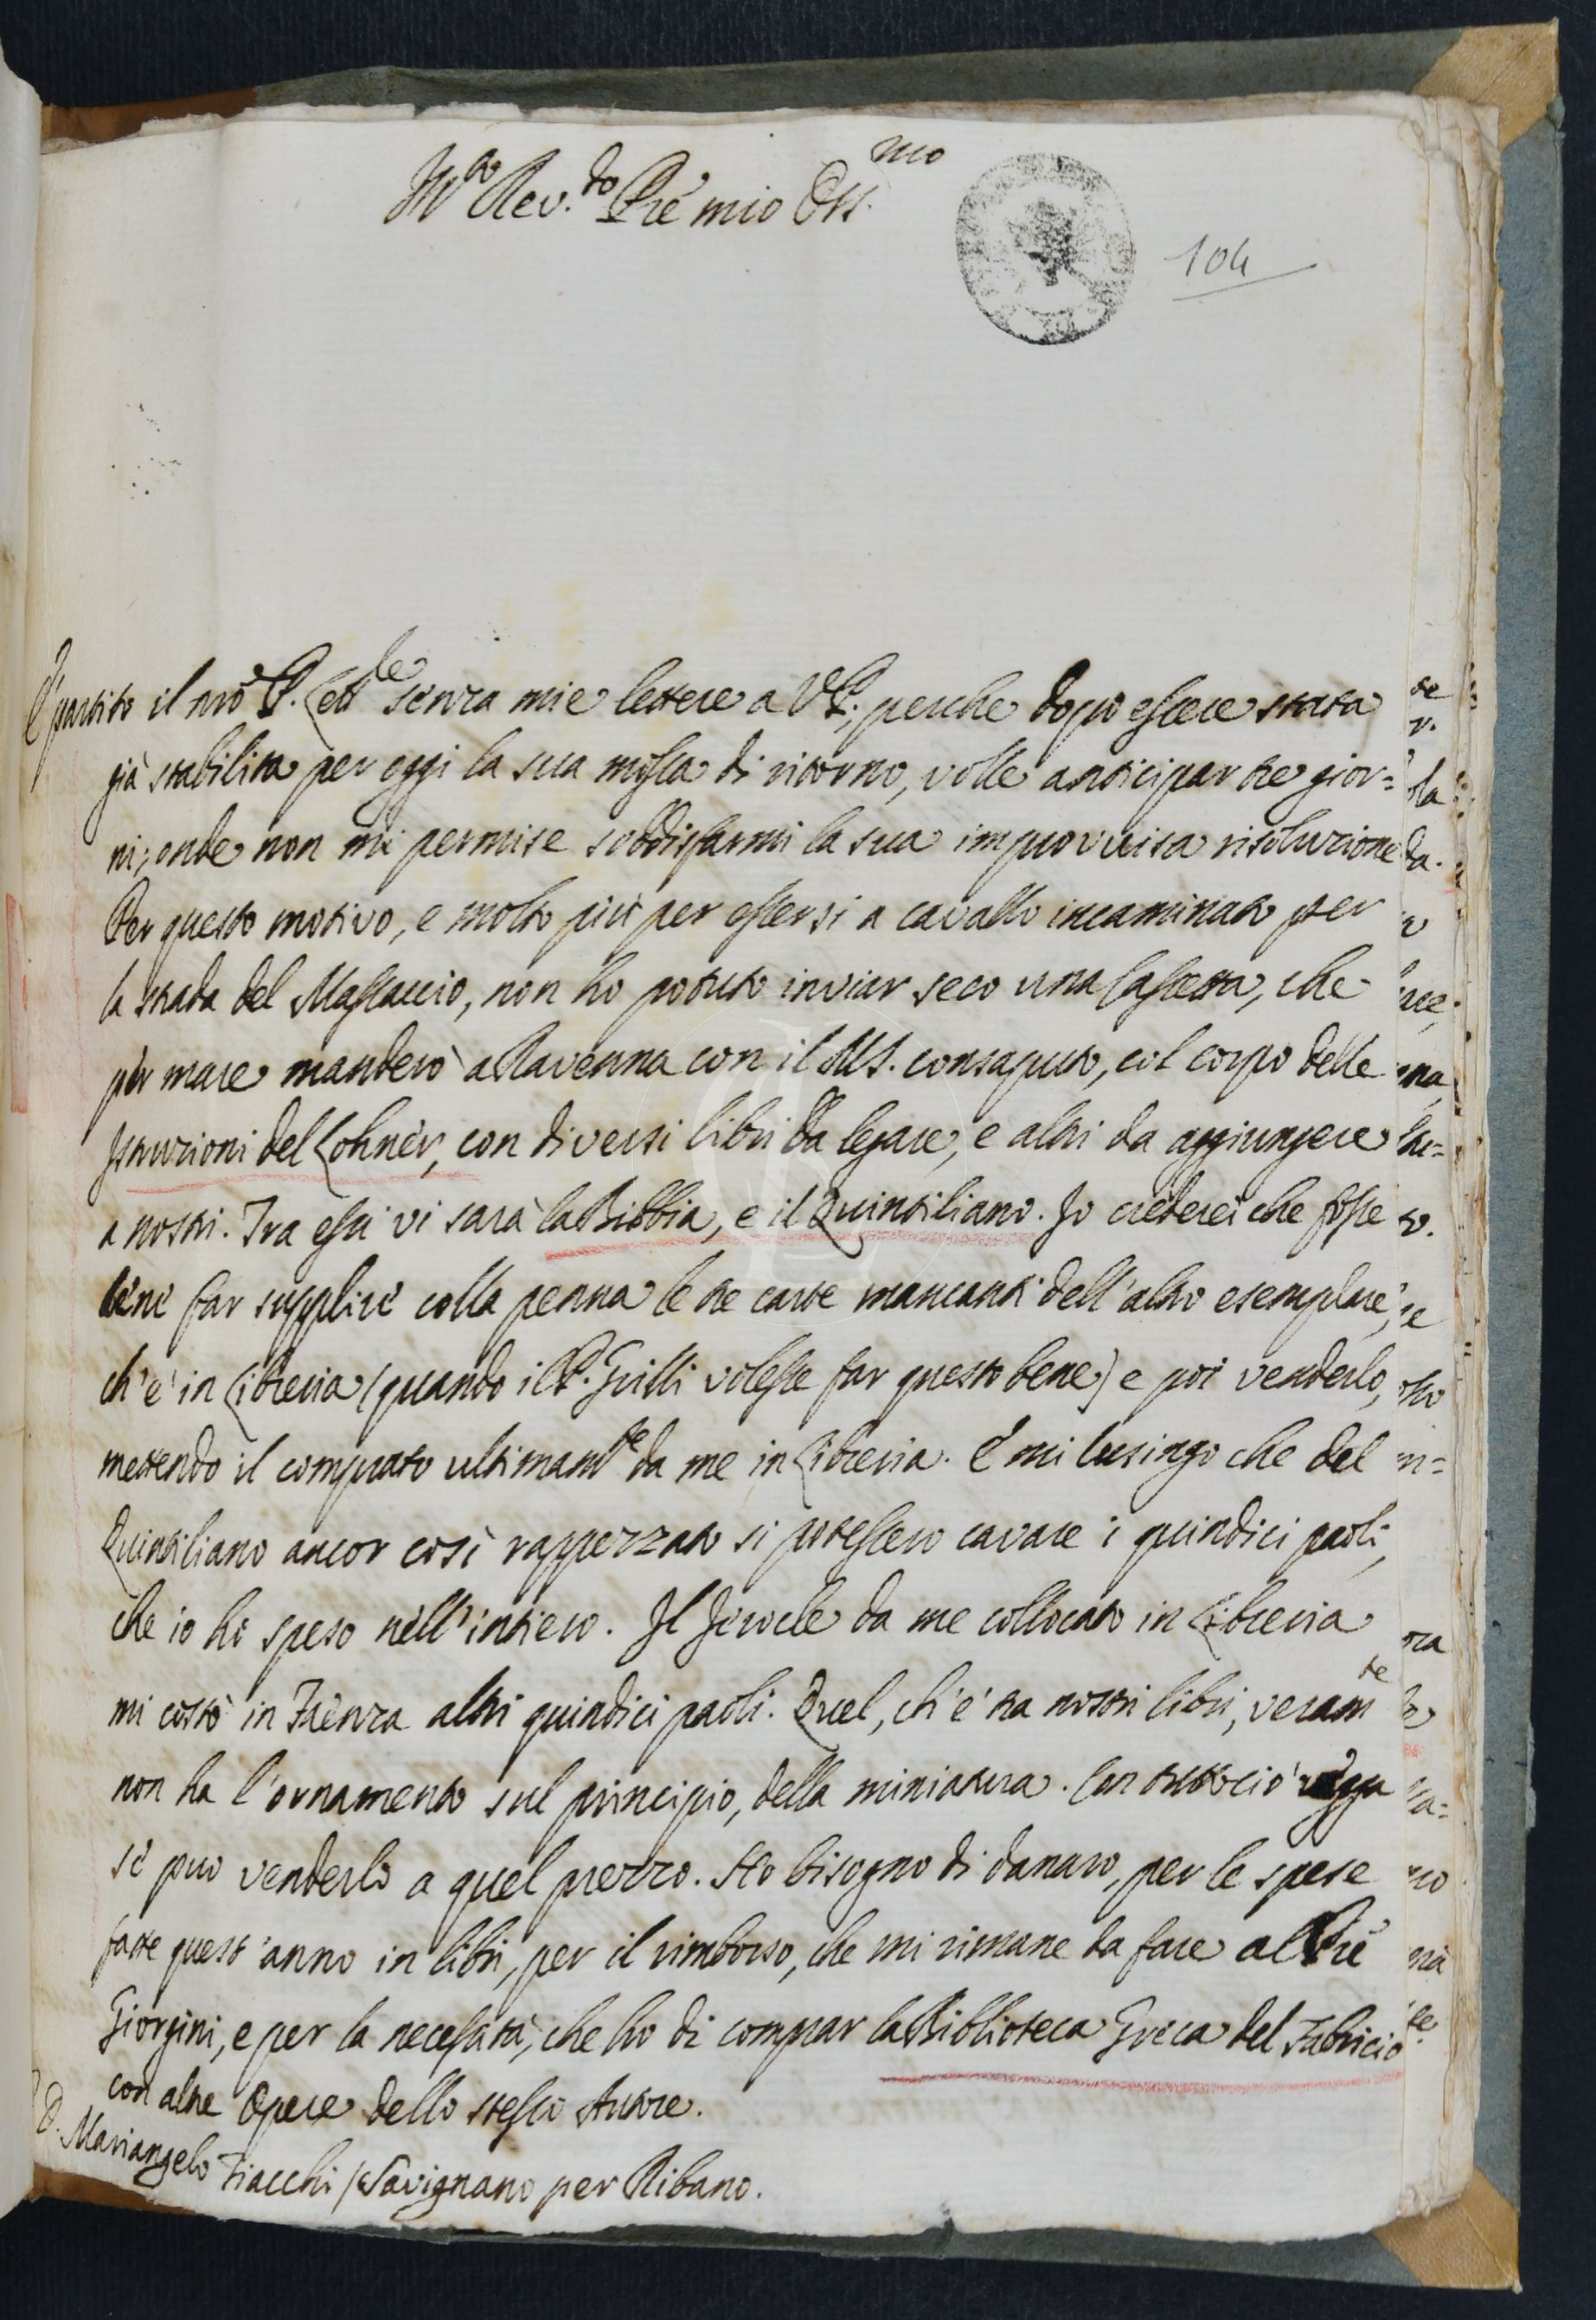 M.to Rev.do Pre mio Oss.mo
104
È partito il nro P. Lett.le senza mie lettere a V.P., perche dopo essere stata
già stabilita per oggi la sua mossa di ritorno, volle anticipar tre gior=
ni; onde non mi permise soddisfarmi la sua improvvisa risoluzione
Per questo motivo, e molto più per essersi a cavallo incaminato per
la strada del Massaccio, non ho potuto inviar seco una Cassetta, che
per mare manderò a Ravenna con il MS. consaputo, col corpo delle
Istruzioni del Lohner, con diversi libri da legare, e altri da aggiungere
a nostri. Tra essi vi sarà la Bibbia, e il Quintiliano. Io crederei che fosse
bene far supplire colla penna le tre carte mancanti dell'altro esemplare,
ch'è in Libreria (quando il P. Grilli volesse far questo bene) e poi venderlo,
mettendo il comprato ultimam.te da me in Libreria. E mi lusingo che del
Quintiliano ancor così rappezzato si potessero cavare i quindici paoli,
che io ho speso nell'intiero. Il Jerocle da me collocato in Libreria
mi costò in Faenza altri quindici paoli. Quel, ch'è tra nostri libri, veram.te
non ha l'ornamento sul principio, della miniatura. Con tuttociò vegga
se può venderlo a quel prezzo. Ho bisogno di danaro, per le spese
fatte quest'anno in libri, per il rimborso, che mi rimane da fare al Pre
Giorgini, e per la necessità, che ho di comprar la Biblioteca Greca del Fabricio
con altre Opere dello stesso Autore.
D. Mariangelo Fiacchi / Savignano per Ribano.